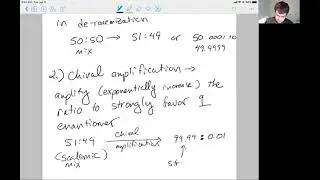 in de-racemization
50:50 → 51:49 or 50.0001 to
mix 49.9999
2.) Chiral amplification →
amplify (exponentially increase) the
ratio to strongly favor 1
enantiomer
51:49 chiral amplification → 99.99 : 0.01
(scalemic)
mix